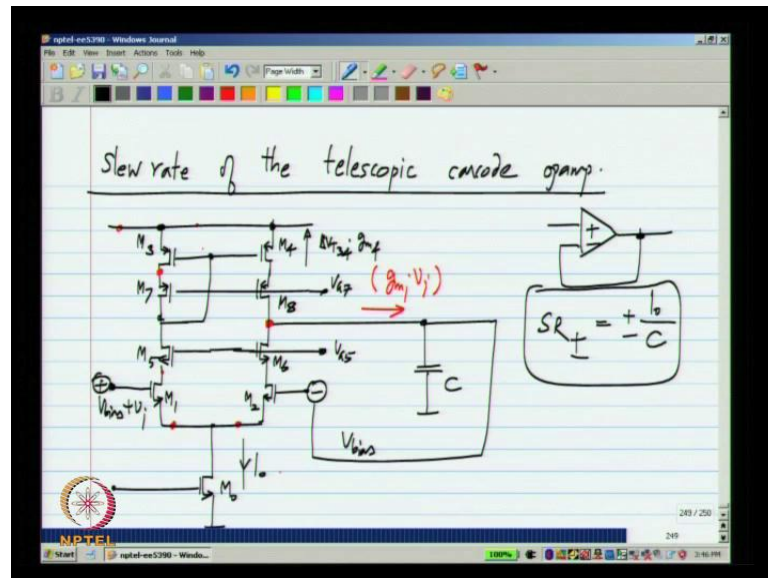 nptel-ee5390 - Windows Journal
File Edit View Insert Actions Tools Help
Page Width
B I
Slew rate of the telescopic cascode opamp.
M3
M4
ΔV34 gm4
M7
M8
VG7
(gm1·vi)
M5
M6
VG5
+
Vbias+vi
M1
M2
−
C
Vbias
I0
M0
+
−
SR± = ± I0/C
249 / 250
249
NPTEL
Start
nptel-ee5390 - Windo...
100%
3:46 PM